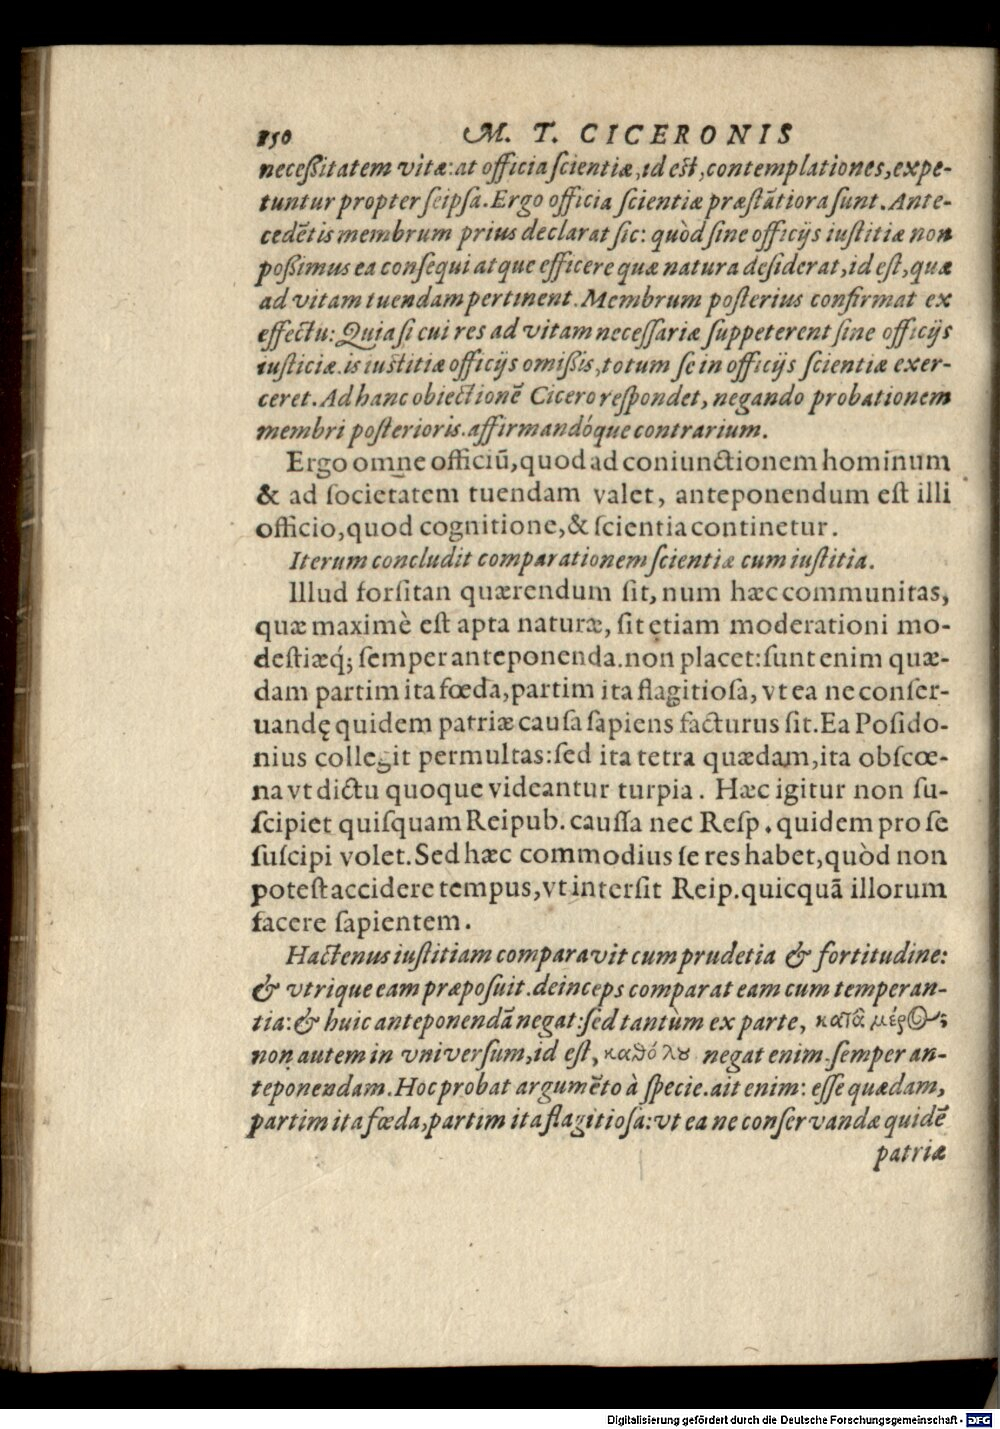 150 M. T. CICERONIS
neceßitatem vitæ: at officia ſcientiæ, id eſt, contemplationes, expe-
tuntur propter ſeipſa. Ergo officia ſcientiæ præſtātiora ſunt. Ante-
cedētis membrum prius declarat ſic: quòd ſine officijs iuſtitiæ non
poßimus ea conſequi atque efficere quæ natura deſiderat, id eſt, quæ
ad vitam tuendam pertinent. Membrum poſterius confirmat ex
effectu: Quia ſi cui res ad vitam neceſſariæ ſuppeterent ſine officijs
iuſticiæ. is iuſtitiæ officijs omißis, totum ſe in officijs ſcientiæ exer-
ceret. Ad hanc obiectionē Cicero reſpondet, negando probationem
membri poſterioris. affirmandóque contrarium.
Ergo omne officiū, quod ad coniunctionem hominum
& ad ſocietatem tuendam valet, anteponendum eſt illi
officio, quod cognitione, & ſcientia continetur.
Iterum concludit comparationem ſcientiæ cum iuſtitia.
Illud forſitan quærendum ſit, num hæc communitas,
quæ maximè eſt apta naturæ, ſit etiam moderationi mo-
deſtiæq́; ſemper anteponenda. non placet: ſunt enim quæ-
dam partim ita fœda, partim ita flagitioſa, vt ea ne conſer-
uandę quidem patriæ cauſa ſapiens facturus ſit. Ea Poſido-
nius collegit permultas: ſed ita tetra quædam, ita obſcœ-
na vt dictu quoque videantur turpia. Hæc igitur non ſu-
ſcipiet quiſquam Reipub. cauſſa nec Reſp. quidem pro ſe
ſuſcipi volet. Sed hæc commodius ſe res habet, quòd non
poteſt accidere tempus, vt interſit Reip. quicquā illorum
facere ſapientem.
Hactenus iuſtitiam comparavit cum prudetia & fortitudine:
& vtrique eam præpoſuit. deinceps comparat eam cum temperan-
tia: & huic anteponendā negat: ſed tantùm ex parte, κατὰ μέρος;
non autem in vniverſum, id eſt, καθόλου negat enim ſemper an-
teponendam. Hoc probat argumēto à ſpecie. ait enim: eſſe quædam,
partim ita fœda, partim ita flagitioſa: vt ea ne conſervandæ quidē
patriæ
Digitalisierung gefördert durch die Deutsche Forschungsgemeinschaft - DFG